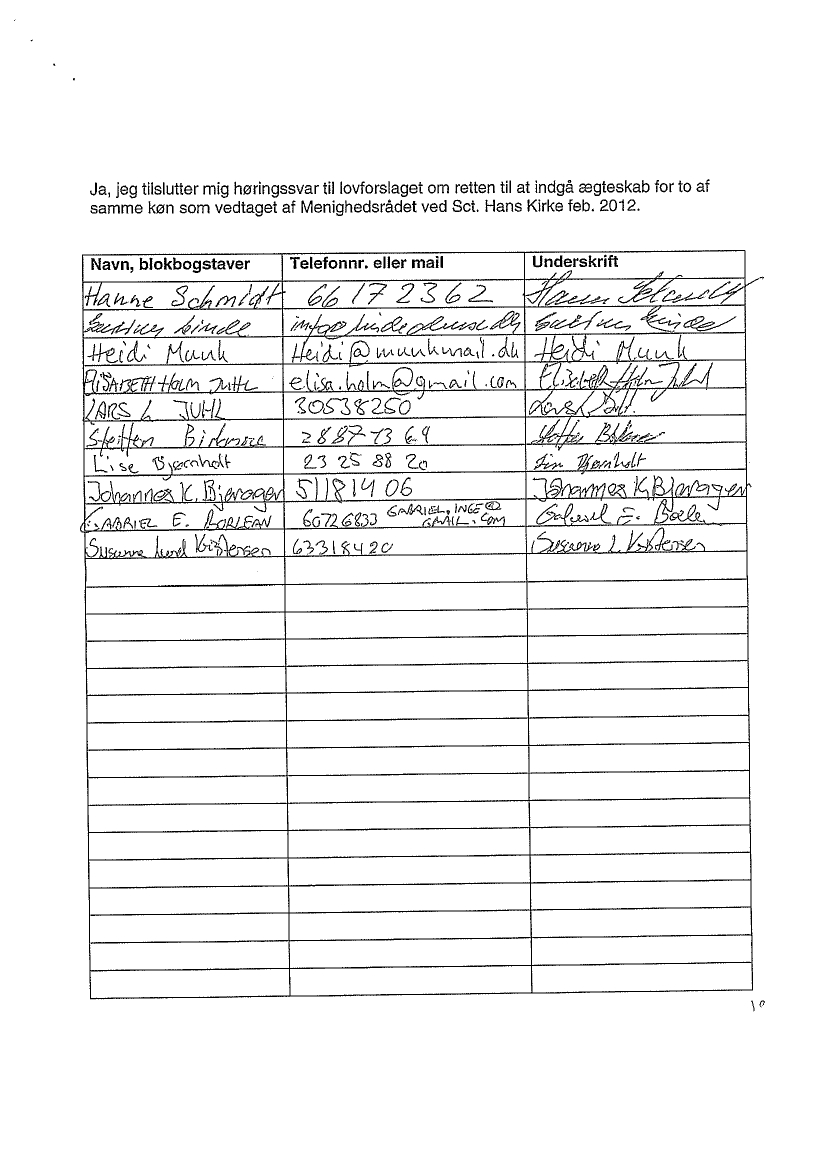 Ja, jeg tilslutter mig høringssvar til lovforslaget om retten til at indgå ægteskab for to af
samme køn som vedtaget af Menighedsrådet ved Sct. Hans Kirke feb. 2012.
Navn, blokbogstaver Telefonnr. eller mail Underskrift
Hanne Schmidt 66 17 23 62 Hanne Schmidt
Heidi Munk Heidi@munkmail.dk Heidi Munk
ELISABETH HOLM JUHL elisa.holm@gmail.com Elisabeth Holm Juhl
LARS L JUHL 30538250
Steffen 28871369 Steffen
Lise Bjørnholt 23 25 88 20 Bjørnholt
Johannes K. Bjerager 51181406 Johannes K. Bjerager
GABRIEL E. 60726833 GABRIEL.INGE@
GMAIL.COM Gabriel E.
Susanne Lund Kristensen 63318420 Susanne L. Kristensen
10